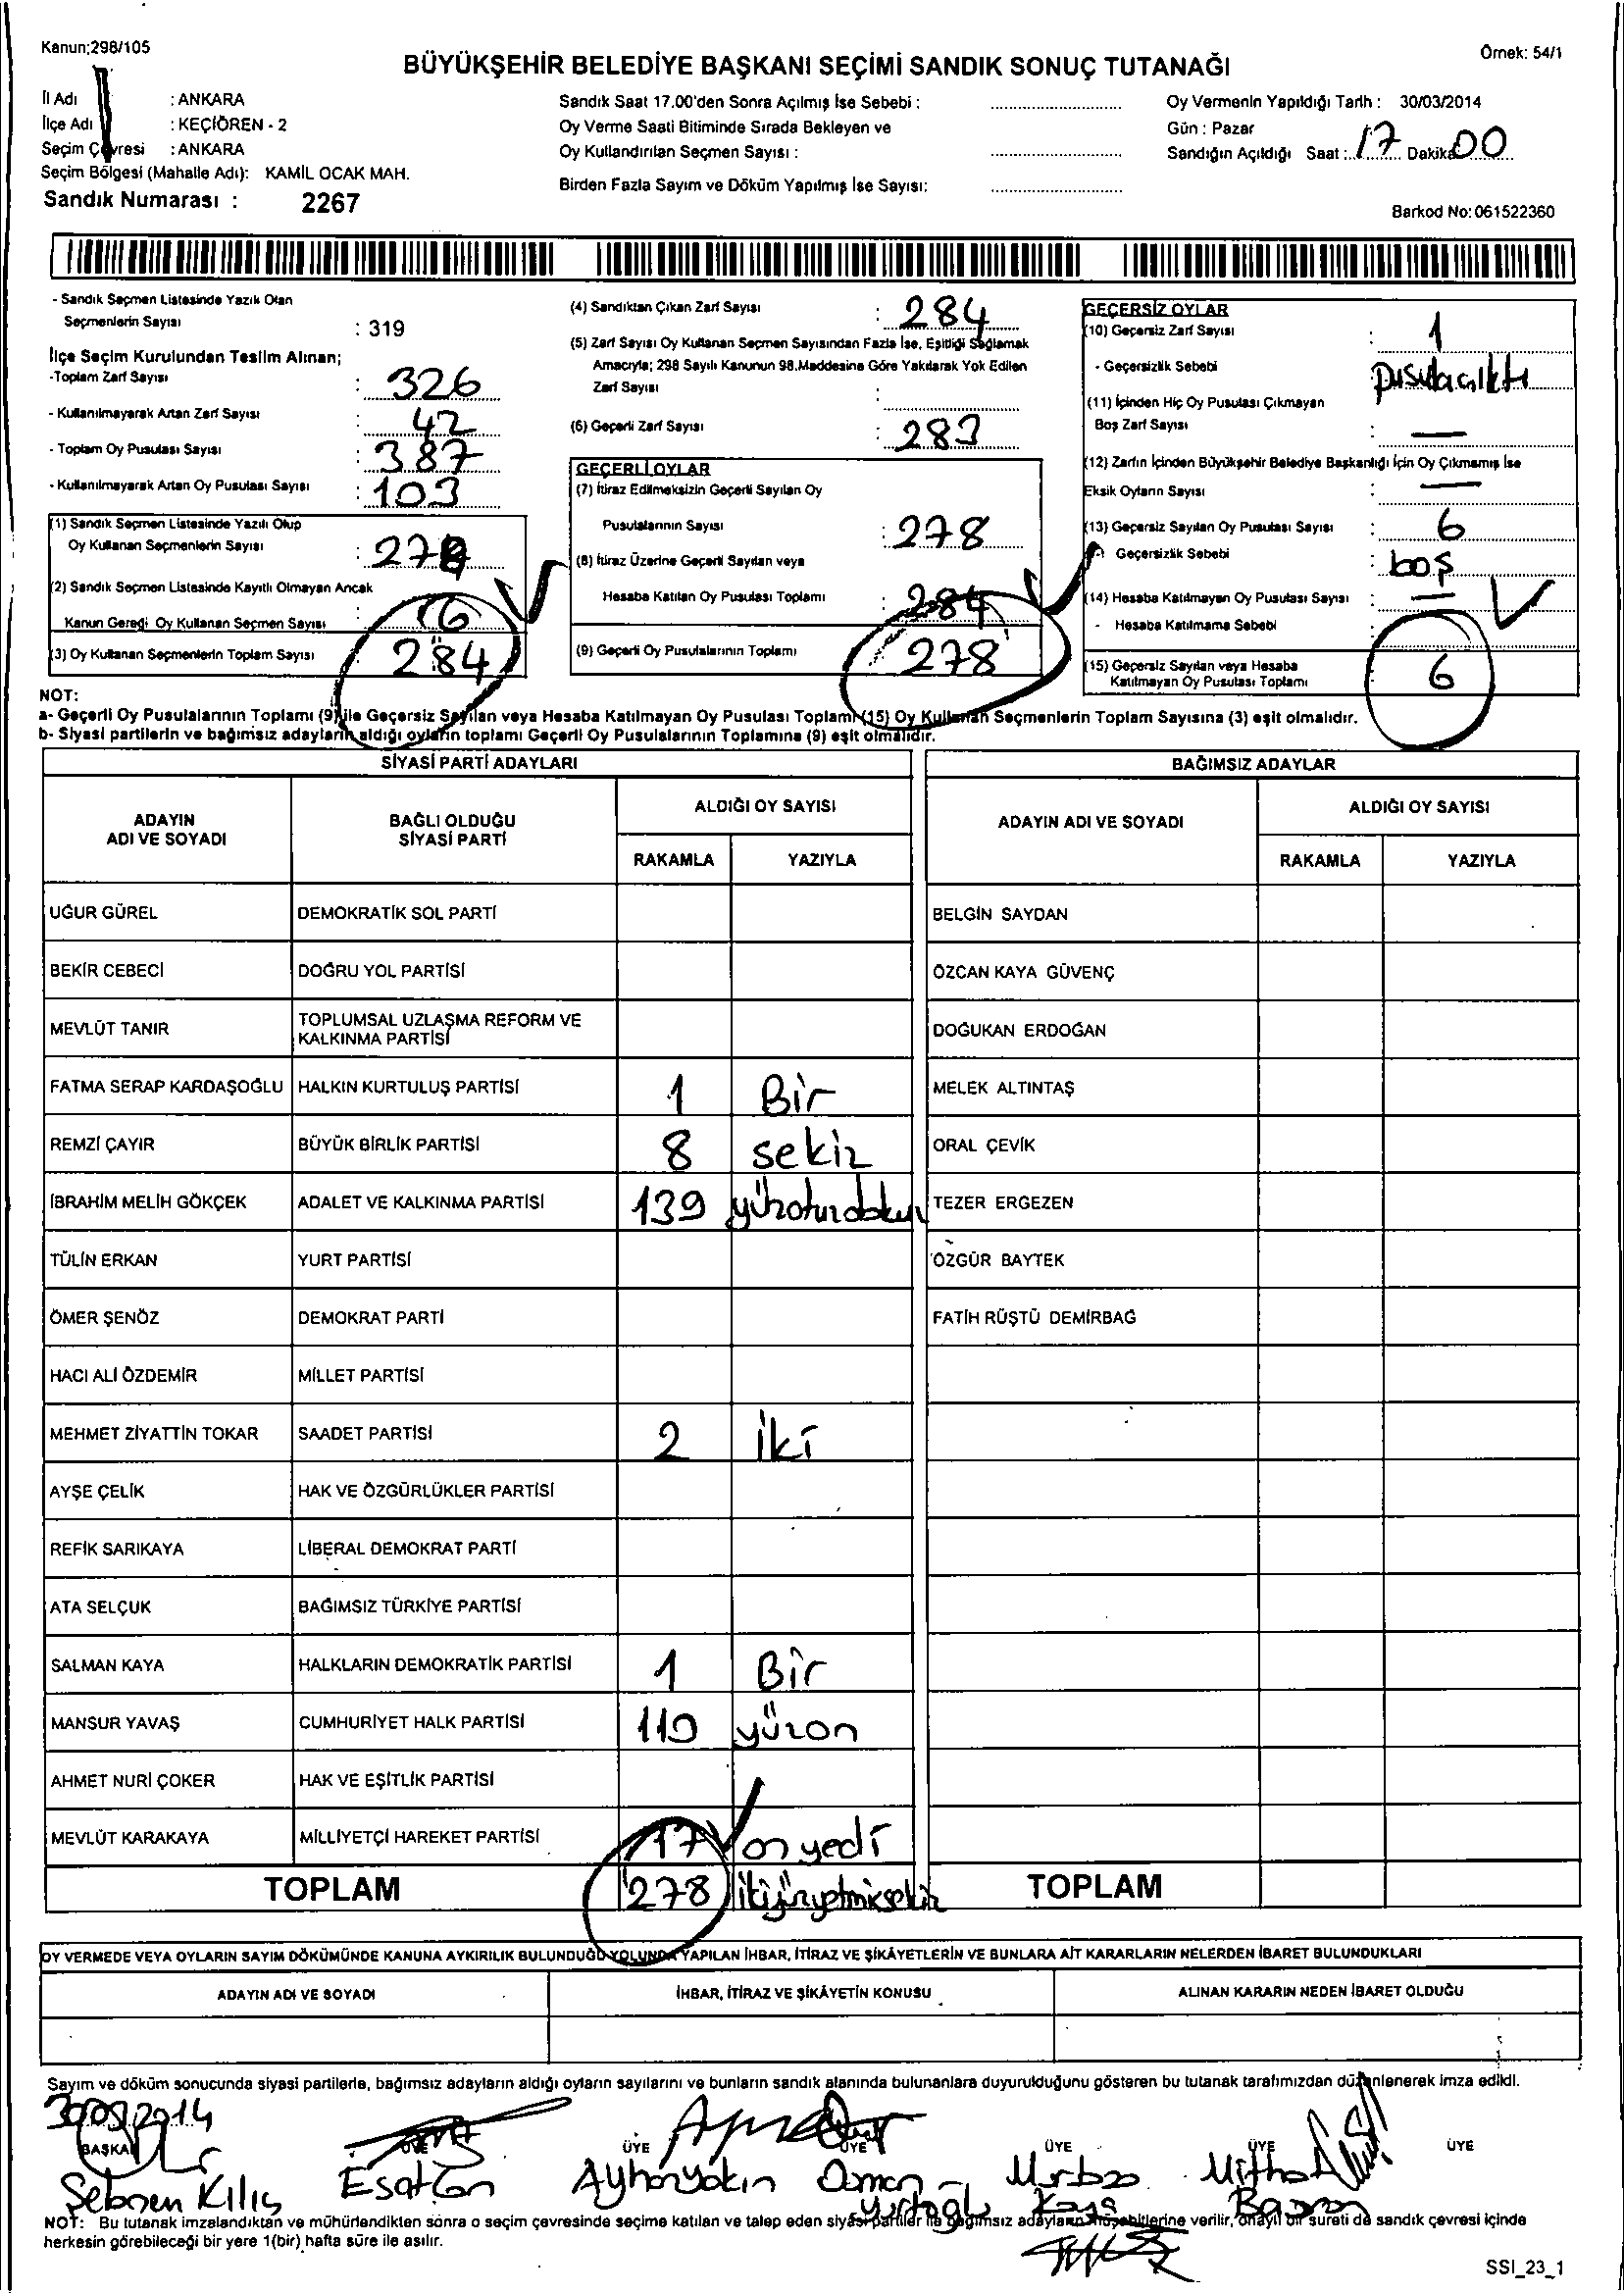 Kanun;298/105
Örnek: 54/1
BÜYÜKŞEHİR BELEDİYE BAŞKANI SEÇİMİ SANDIK SONUÇ TUTANAĞI
İl Adı : ANKARA
İlçe Adı : KEÇİÖREN - 2
Seçim Çevresi : ANKARA
Seçim Bölgesi (Mahalle Adı): KAMİL OCAK MAH.
Sandık Numarası : 2267
Sandık Saat 17.00'den Sonra Açılmış İse Sebebi :
Oy Verme Saati Bitiminde Sırada Bekleyen ve
Oy Kullandırılan Seçmen Sayısı :
Birden Fazla Sayım ve Döküm Yapılmış İse Sayısı:
Oy Vermenin Yapıldığı Tarih : 30/03/2014
Gün : Pazar
Sandığın Açıldığı Saat : 17 Dakika 00
Barkod No: 061522360
- Sandık Seçmen Listesinde Yazılı Olan
Seçmenlerin Sayısı : 319
İlçe Seçim Kurulundan Teslim Alınan;
-Toplam Zarf Sayısı : 326
- Kullanılmayarak Artan Zarf Sayısı : 42
- Toplam Oy Pusulası Sayısı : 387
- Kullanılmayarak Artan Oy Pusulası Sayısı : 103
(1) Sandık Seçmen Listesinde Yazılı Olup
Oy Kullanan Seçmenlerin Sayısı : 278
(2) Sandık Seçmen Listesinde Kayıtlı Olmayan Ancak
Kanun Gereği Oy Kullanan Seçmen Sayısı : 6
(3) Oy Kullanan Seçmenlerin Toplam Sayısı : 284
(4) Sandıktan Çıkan Zarf Sayısı : 284
(5) Zarf Sayısı Oy Kullanan Seçmen Sayısından Fazla İse, Eşitliği Sağlamak
Amacıyla; 298 Sayılı Kanunun 98.Maddesine Göre Yakılarak Yok Edilen
Zarf Sayısı :
(6) Geçerli Zarf Sayısı : 283
GEÇERLİ OYLAR
(7) İtiraz Edilmeksizin Geçerli Sayılan Oy
Pusulalarının Sayısı : 278
(8) İtiraz Üzerine Geçerli Sayılan veya
Hesaba Katılan Oy Pusulası Toplamı : 284
(9) Geçerli Oy Pusulalarının Toplamı : 278
GEÇERSİZ OYLAR
(10) Geçersiz Zarf Sayısı : 1
- Geçersizlik Sebebi : pusulaçıktı
(11) İçinden Hiç Oy Pusulası Çıkmayan
Boş Zarf Sayısı : —
(12) Zarfın İçinden Büyükşehir Belediye Başkanlığı İçin Oy Çıkmamış İse
Eksik Oyların Sayısı : —
(13) Geçersiz Sayılan Oy Pusulası Sayısı : 6
- Geçersizlik Sebebi : boş
(14) Hesaba Katılmayan Oy Pusulası Sayısı : —
- Hesaba Katılmama Sebebi
(15) Geçersiz Sayılan veya Hesaba
Katılmayan Oy Pusulası Toplamı : 6
NOT:
a- Geçerli Oy Pusulalarının Toplamı (9) ile Geçersiz Sayılan veya Hesaba Katılmayan Oy Pusulası Toplamı (15) Oy Kullanan Seçmenlerin Toplam Sayısına (3) eşit olmalıdır.
b- Siyasi partilerin ve bağımsız adayların aldığı oyların toplamı Geçerli Oy Pusulalarının Toplamına (9) eşit olmalıdır.
SİYASİ PARTİ ADAYLARI
BAĞIMSIZ ADAYLAR
ADAYIN
ADI VE SOYADI
BAĞLI OLDUĞU
SİYASİ PARTİ
ALDIĞI OY SAYISI
RAKAMLA YAZIYLA
ADAYIN ADI VE SOYADI
ALDIĞI OY SAYISI
RAKAMLA YAZIYLA
UĞUR GÜREL DEMOKRATİK SOL PARTİ BELGİN SAYDAN
BEKİR CEBECİ DOĞRU YOL PARTİSİ ÖZCAN KAYA GÜVENÇ
MEVLÜT TANIR TOPLUMSAL UZLAŞMA REFORM VE
KALKINMA PARTİSİ DOĞUKAN ERDOĞAN
FATMA SERAP KARDAŞOĞLU HALKIN KURTULUŞ PARTİSİ 1 Bir MELEK ALTINTAŞ
REMZİ ÇAYIR BÜYÜK BİRLİK PARTİSİ 8 sekiz ORAL ÇEVİK
İBRAHİM MELİH GÖKÇEK ADALET VE KALKINMA PARTİSİ 139 yüzotuzdokuz TEZER ERGEZEN
TÜLİN ERKAN YURT PARTİSİ ÖZGÜR BAYTEK
ÖMER ŞENÖZ DEMOKRAT PARTİ FATİH RÜŞTÜ DEMİRBAĞ
HACI ALİ ÖZDEMİR MİLLET PARTİSİ
MEHMET ZİYATTİN TOKAR SAADET PARTİSİ 2 iki
AYŞE ÇELİK HAK VE ÖZGÜRLÜKLER PARTİSİ
REFİK SARIKAYA LİBERAL DEMOKRAT PARTİ
ATA SELÇUK BAĞIMSIZ TÜRKİYE PARTİSİ
SALMAN KAYA HALKLARIN DEMOKRATİK PARTİSİ 1 Bir
MANSUR YAVAŞ CUMHURİYET HALK PARTİSİ 110 yüzon
AHMET NURİ ÇOKER HAK VE EŞİTLİK PARTİSİ
MEVLÜT KARAKAYA MİLLİYETÇİ HAREKET PARTİSİ 17 onyedi
TOPLAM 278 ikiyüzyetmişsekiz TOPLAM
OY VERMEDE VEYA OYLARIN SAYIM DÖKÜMÜNDE KANUNA AYKIRILIK BULUNDUĞU YOLUNDA YAPILAN İHBAR, İTİRAZ VE ŞİKÂYETLERİN VE BUNLARA AİT KARARLARIN NELERDEN İBARET BULUNDUKLARI
ADAYIN ADI VE SOYADI İHBAR, İTİRAZ VE ŞİKÂYETİN KONUSU ALINAN KARARIN NEDEN İBARET OLDUĞU
Sayım ve döküm sonucunda siyasi partilerle, bağımsız adayların aldığı oyların sayılarını ve bunların sandık alanında bulunanlara duyurulduğunu gösteren bu tutanak tarafımızdan düzenlenerek imza edildi.
30/03/2014
BAŞKAN ÜYE ÜYE ÜYE ÜYE ÜYE ÜYE
Şebnem Kılıç Esat Can Ayhan Yakın Osman Yurtoğlu Kaya Mithat
NOT: Bu tutanak imzalandıktan ve mühürlendikten sonra o seçim çevresinde seçime katılan ve talep eden siyasi partiler ile bağımsız adayların müşahitlerine verilir, onaylı bir sureti de sandık çevresi içinde
herkesin görebileceği bir yere 1(bir) hafta süre ile asılır.
SSI_23_1